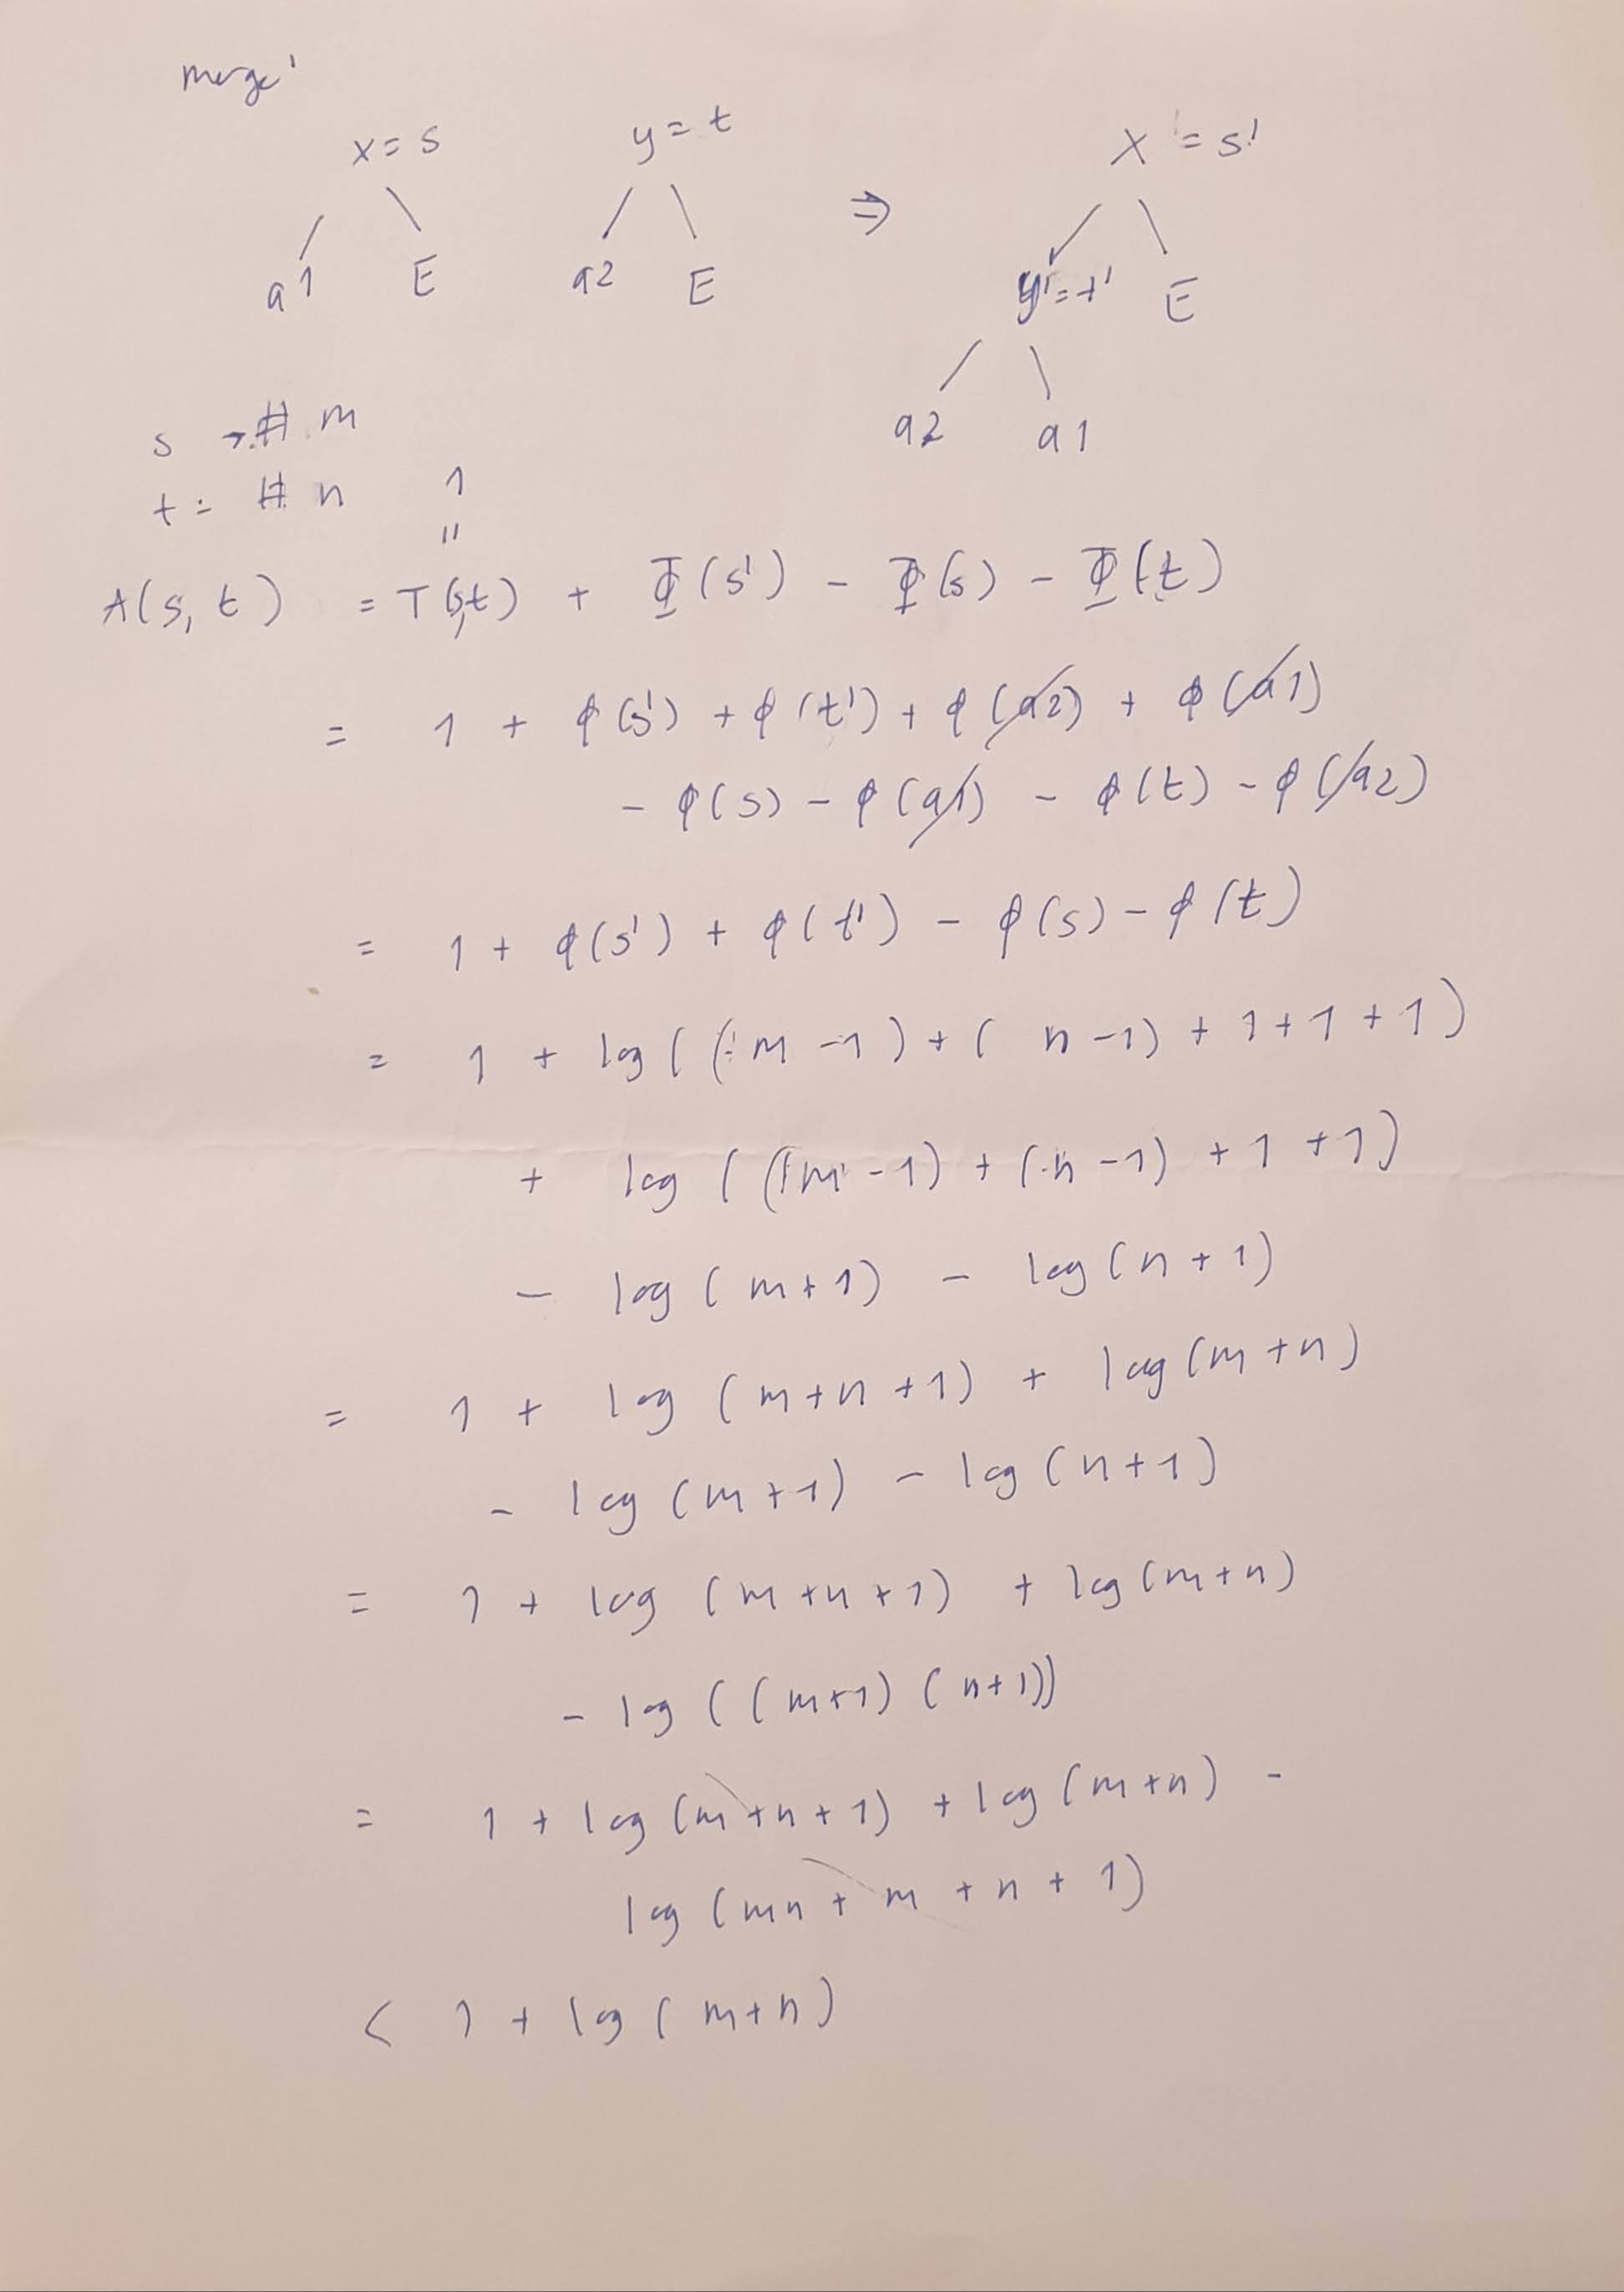 merge'
x = s y = t ⇒ x' = s'
a1 E a2 E y' = t' E
a2 a1
s → # m
t : # n 1
"
A(s, t) = T(s,t) + Φ(s') - Φ(s) - Φ(t)
= 1 + φ(s') + φ(t') + φ(a2) + φ(a1)
- φ(s) - φ(a1) - φ(t) - φ(a2)
= 1 + φ(s') + φ(t') - φ(s) - φ(t)
= 1 + log((m - 1) + (n - 1) + 1 + 1 + 1)
+ log((m - 1) + (n - 1) + 1 + 1)
- log(m + 1) - log(n + 1)
= 1 + log(m + n + 1) + log(m + n)
- log(m + 1) - log(n + 1)
= 1 + log(m + n + 1) + log(m + n)
- log((m + 1)(n + 1))
= 1 + log(m + n + 1) + log(m + n) -
log(mn + m + n + 1)
< 1 + log(m + n)